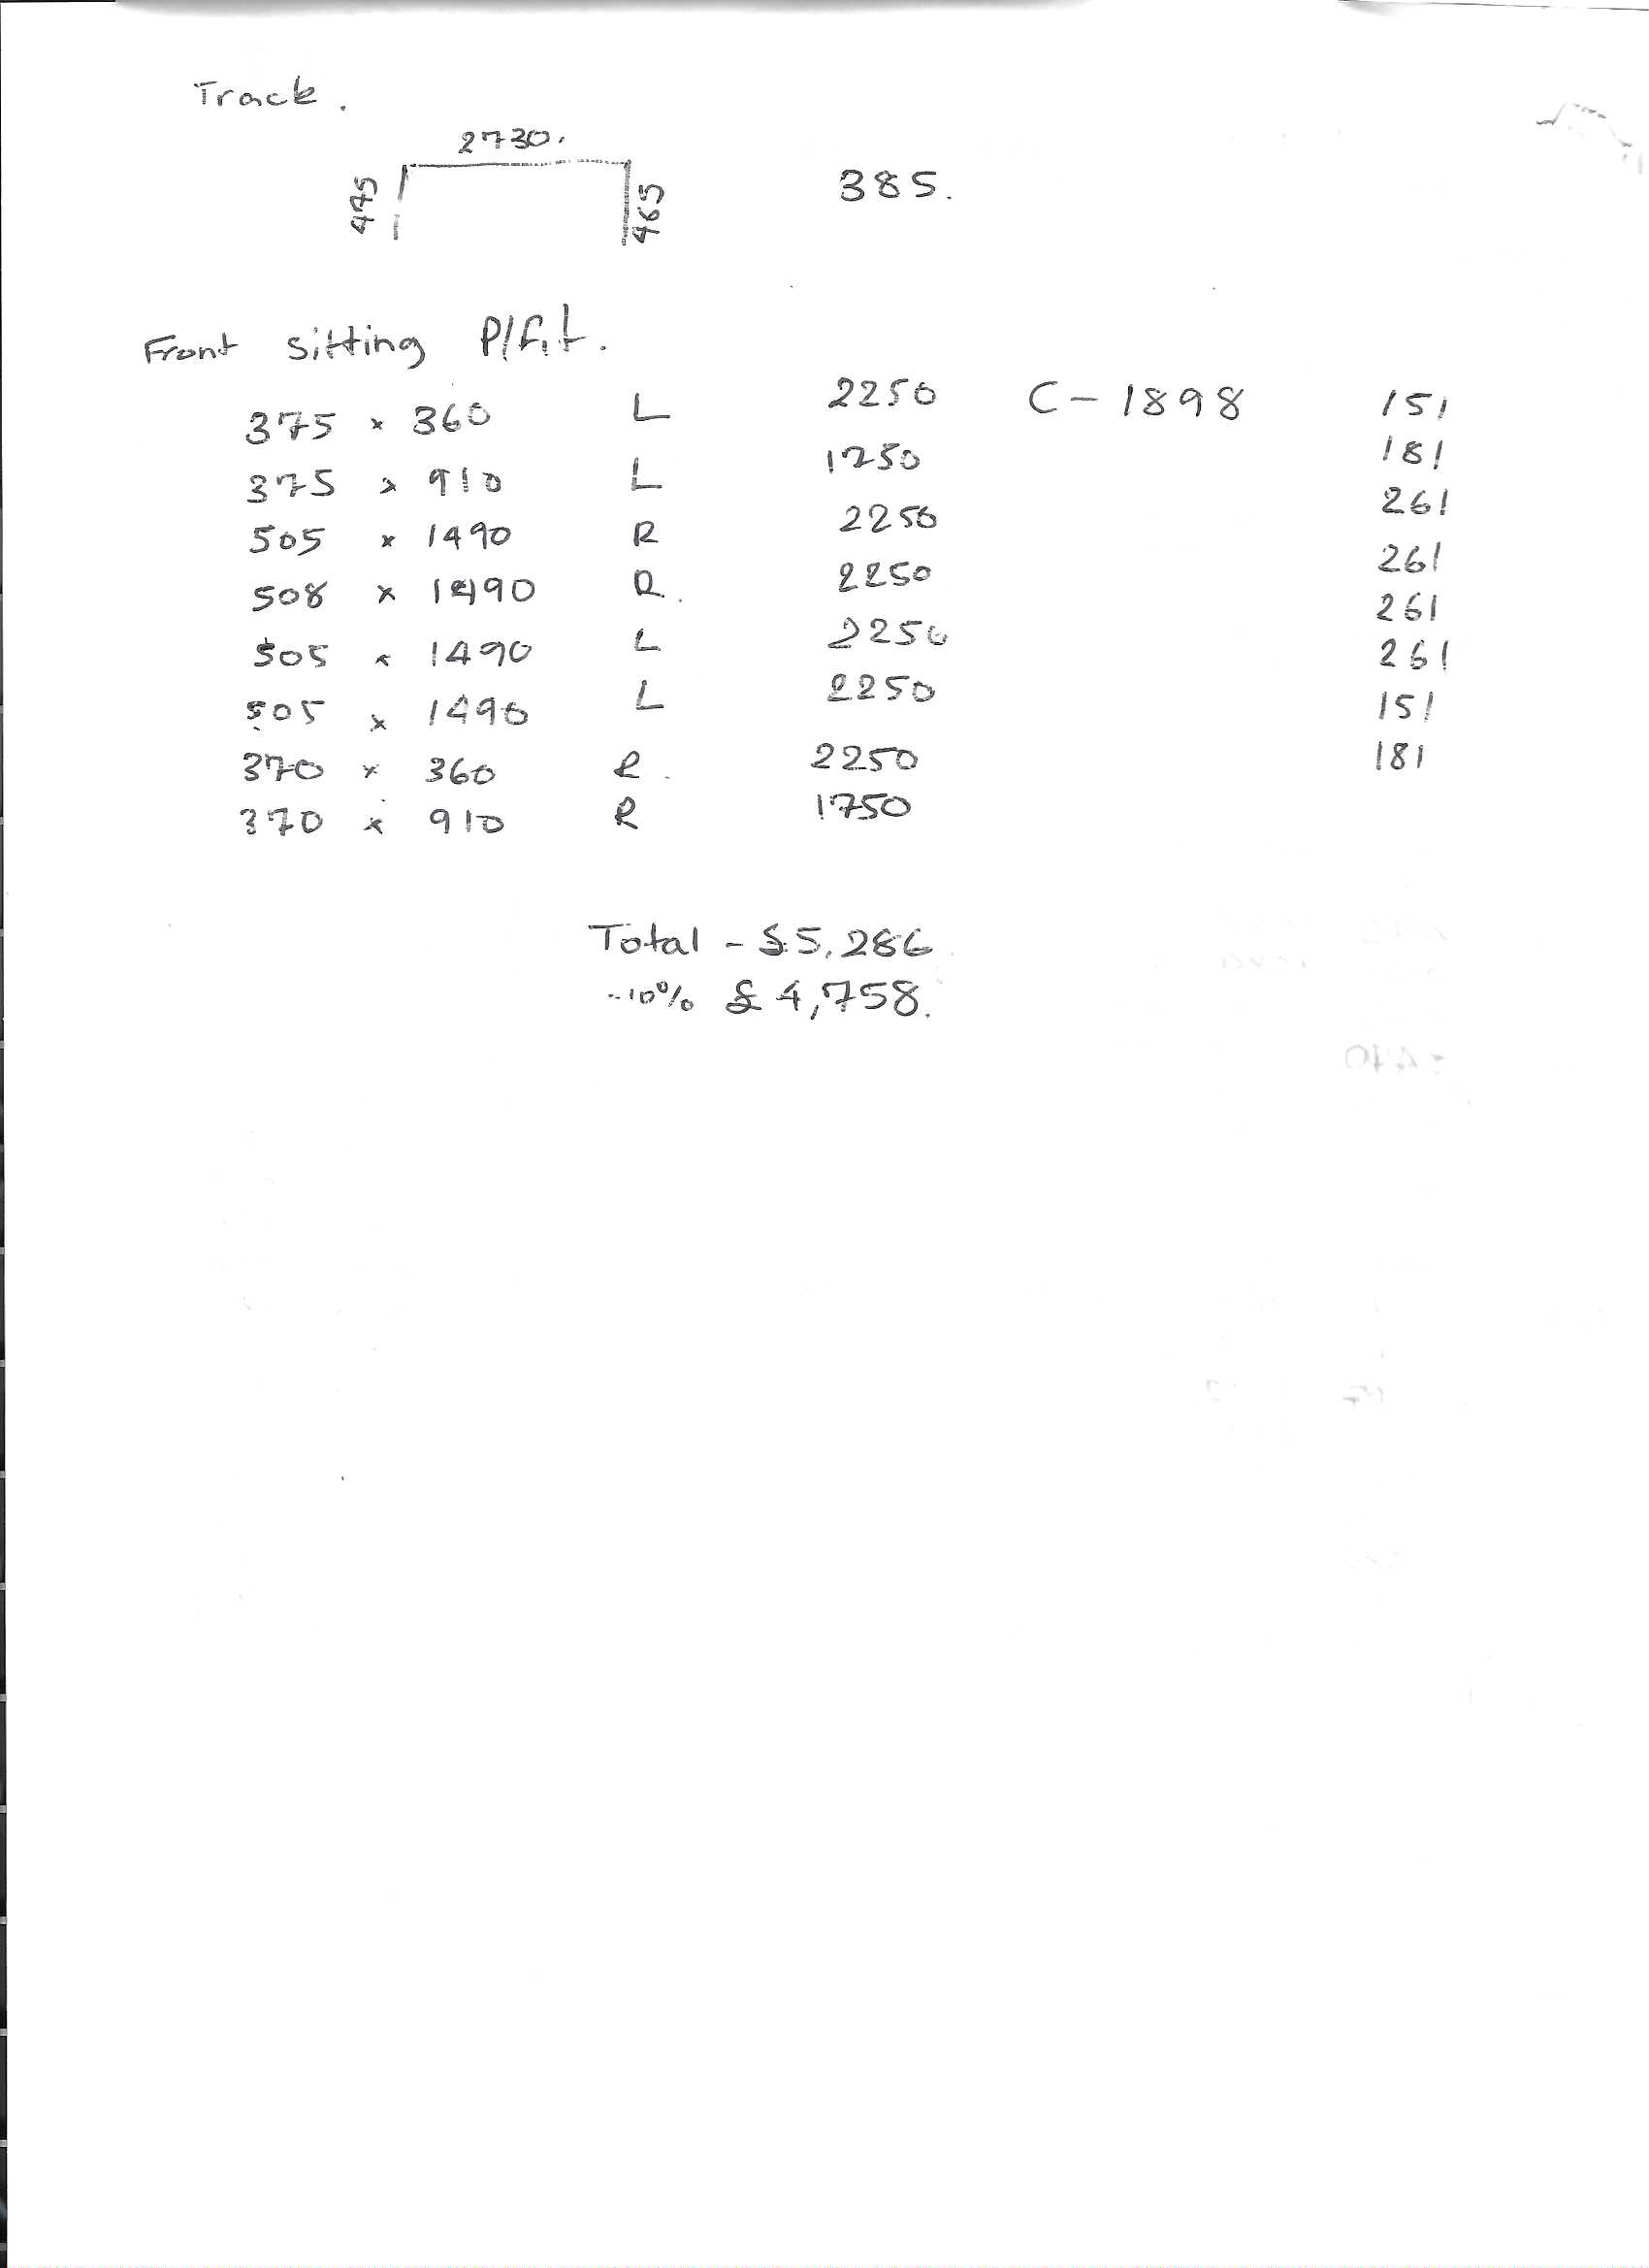 Track.
2730.
445
465
385.
Front sitting P/fit.
375 x 360 L 2250 C - 1898 151
375 x 910 L 1750 181
505 x 1490 R 2250 261
508 x 1490 R. 2250 261
505 x 1490 L 2250 261
505 x 1490 L 2250 261
370 x 360 R. 2250 151
370 x 910 R 1750 181
Total - £5,286
-10% £4,758.